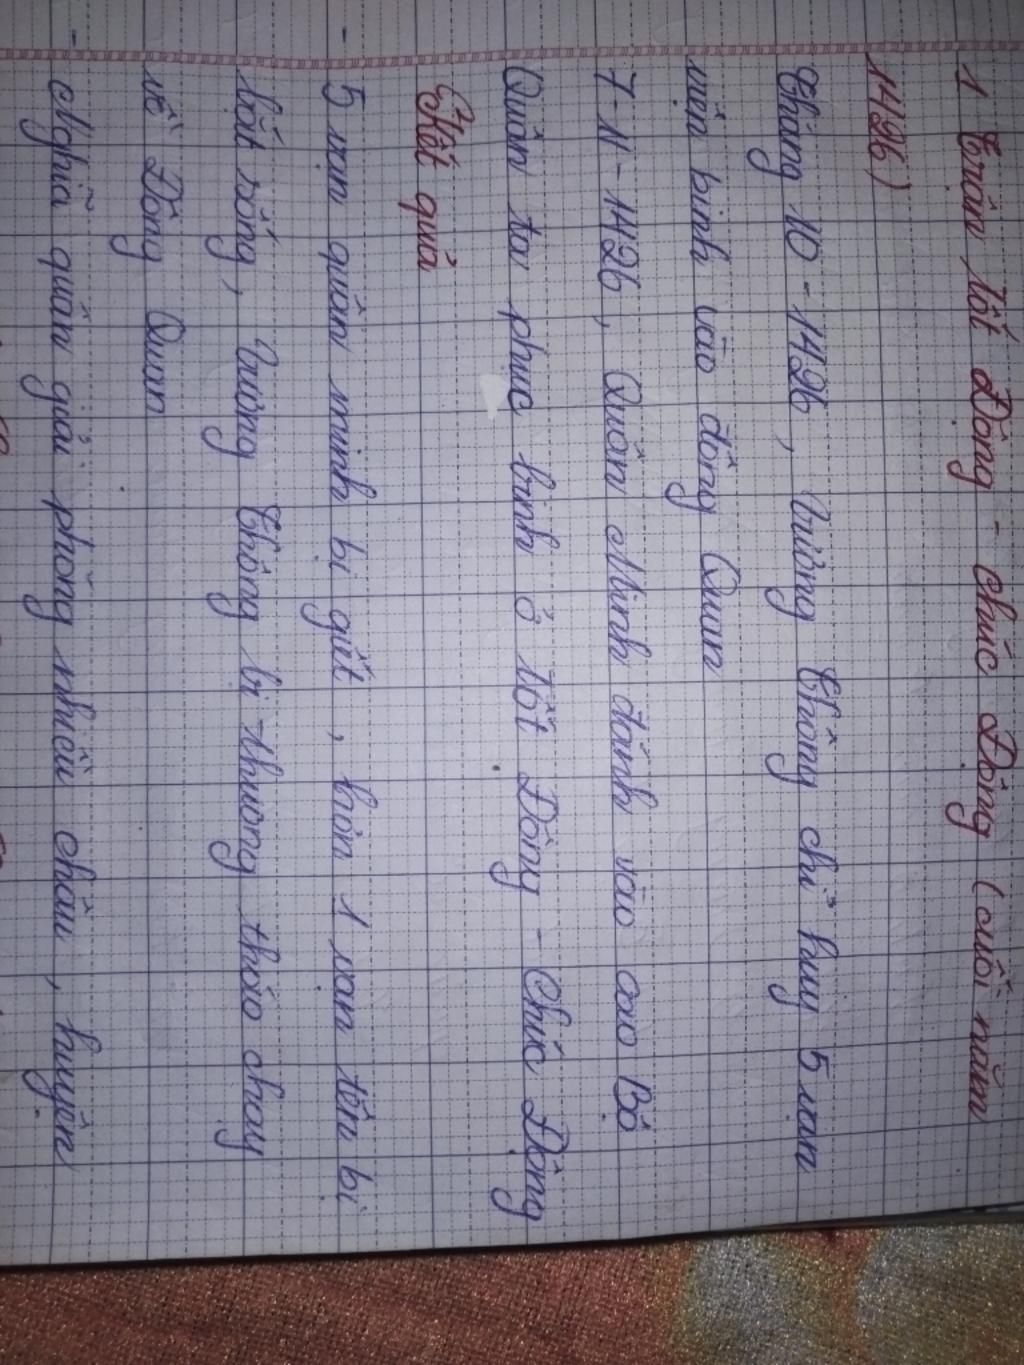 1 Trận Tốt Động - Chúc Động (cuối năm
1426)
Tháng 10 - 1426, Vương Thông chỉ huy 5 vạn
viện binh vào đông Quan
7-11-1426, Quân Minh đánh vào cao Bộ
Quân ta phục binh ở Tốt Động - Chúc Động
Kết quả
5 vạn quân minh bị giết, hơn 1 vạn tên bị
bắt sống, Vương Thông bị thương tháo chạy
về Đông Quan
Nghĩa quân giải phóng nhiều châu, huyện